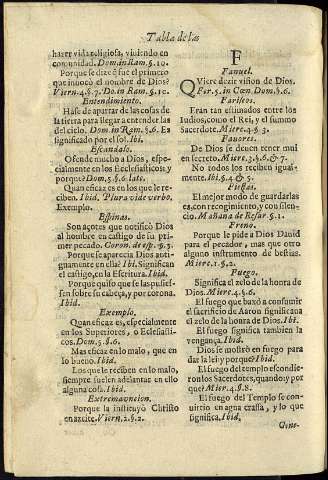 Tabla de las
hazer vida religiosa, viviendo en
comunidad. Dom in Ram. §. 10.
Porque se dize q̃ fue el primero
que invocò el nombre de Dios?
Viern. 4. §. 7. Do. in Ram. §. 10.
Entendimiento.
Hase de apartar de las cosas de
la tierra para llegar a entender las
del cielo. Dom. in Ram. §. 6. Es
significado por el sol. Ibi.
Escandalo.
Ofende mucho a Dios, espe-
cialmente en los Ecclesiasticos; y
porque? Dom. 5. §. 6 late.
Quan eficaz es en los que le re-
ciben. Ibid. Plura vide verbo,
Exemplo.
Espinas.
Son açotes que notificò Dios
al hombre en castigo de su pri-
mer pecado. Coron. de esp. §. 3.
Porque se aparecia Dios anti-
guamente en ella? Ibi. Significan
el castigo, en la Escritura. Ibid.
Porque quiso que se las pusies-
sen sobre su cabeça, y por corona.
Ibid.
Exemplo.
Quan eficaz es, especialmente
en los Superiores, o Ecclesiasti-
cos. Dom. 5. §. 6.
Mas eficaz en lo malo, que en
lo bueno. Ibid.
Los que le reciben en lo malo,
siempre suelen adelantar en ello
alguna cosa. Ibid.
Extremauncion.
Porque la instituyò Christo
en azeite. Viern. 2. §. 2.
F
Fanuel.
QViere dezir vision de Dios.
Fer. 5. in Cœn. Dom. §. 6.
Fariseos.
Eran tan estimados entre los
Iudios, como el Rei, y el summo
Sacerdote. Mierc. 4. §. 3.
Favores.
De Dios se deuen tener mui
en secreto. Mierc. 3. §. 6. & 7.
No todos los reciben igual-
mente. Ibi. §. 4 & 5.
Fiestas.
El mejor modo de guardarlas
es, con recogimiento, y con silen-
cio. Mañana de Resur. §. 1.
Freno.
Porque le pide a Dios David
para el pecador, y mas que otro
alguno instrumento de bestias.
Mierc. 1. §. 2.
Fuego.
Significa el zelo de la honra de
Dios. Mierc. 4. §. 6.
El fuego que baxò a consumir
el sacrificio de Aaron significana
el zelo de la honra de Dios. Ibi.
El fuego significa tambien la
vengança. Ibid.
Dios se mostrò en fuego para
dar la lei y porque? Ibid.
El fuego del templo escondie-
ron los Sacerdotes, quando; y por
que? Mierc. 4. §. 8.
El fuego del Templo se con-
uirtio en agua crassa, y lo que
significa. Ibid.
Gene-